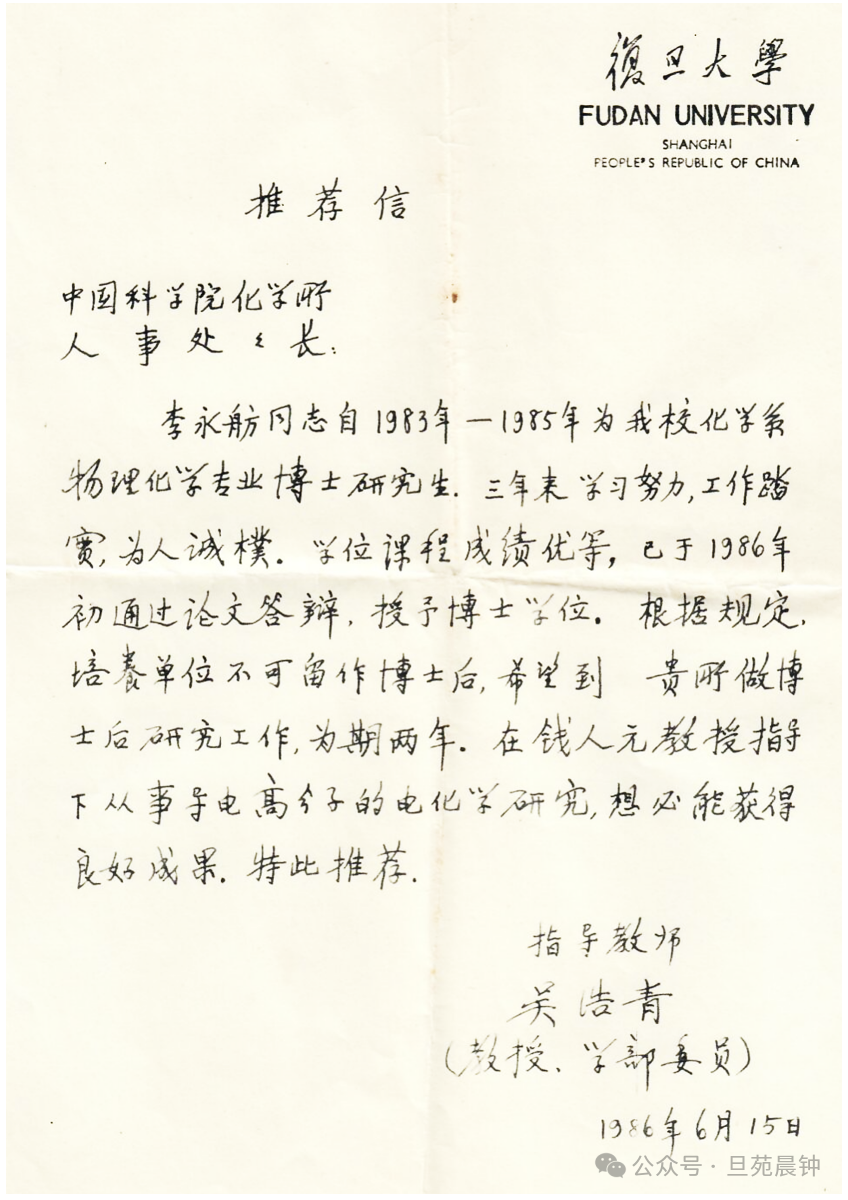 復旦大學
FUDAN UNIVERSITY
SHANGHAI
PEOPLE'S REPUBLIC OF CHINA
推荐信
中国科学院化学所
人事处々长：
李永舫同志自1983年—1985年为我校化学系
物理化学专业博士研究生．三年来学习努力，工作踏
实，为人诚樸。学位课程成绩优等，已于1986年
初通过论文答辩，授予博士学位。根据规定，
培養单位不可留作博士后，希望到 贵所做博
士后研究工作，为期两年。在钱人元教授指导
下从事导电高分子的电化学研究，想必能获得
良好成果．特此推荐．
指导教师
吴浩青
（教授、学部委员）
1986年6月15日
公众号·旦苑晨钟